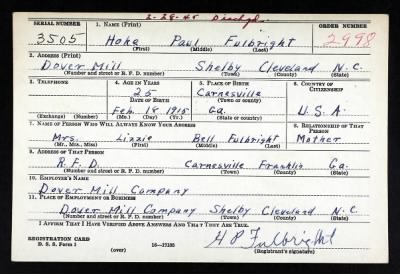 2-28-45 Dischgd.
SERIAL NUMBER 1. NAME (Print) ORDER NUMBER
3505 Hoke Paul Fulbright 2998
(First) (Middle) (Last)
2. ADDRESS (Print)
Dover Mill Shelby Cleveland N.C.
(Number and street or R. F. D. number) (Town) (County) (State)
3. TELEPHONE 4. AGE IN YEARS 5. PLACE OF BIRTH 6. COUNTRY OF CITIZENSHIP
25 Carnesville
DATE OF BIRTH (Town or county)
Feb. 18 1915 Ga. U.S.A
(Exchange) (Number) (Mo.) (Day) (Yr.) (State or country)
7. NAME OF PERSON WHO WILL ALWAYS KNOW YOUR ADDRESS 8. RELATIONSHIP OF THAT PERSON
Mrs. Lizzie Bell Fulbright Mother
(Mr., Mrs., Miss) (First) (Middle) (Last)
9. ADDRESS OF THAT PERSON
R.F.D. Carnesville Franklin Ga.
(Number and street or R. F. D. number) (Town) (County) (State)
10. EMPLOYER'S NAME
Dover Mill Company
11. PLACE OF EMPLOYMENT OR BUSINESS
Dover Mill Company Shelby Cleveland N.C.
(Number and street or R. F. D. number) (Town) (County) (State)
I AFFIRM THAT I HAVE VERIFIED ABOVE ANSWERS AND THAT THEY ARE TRUE.
REGISTRATION CARD H P Fulbright
D. S. S. Form 1 (over) 16-17105 (Registrant's signature)